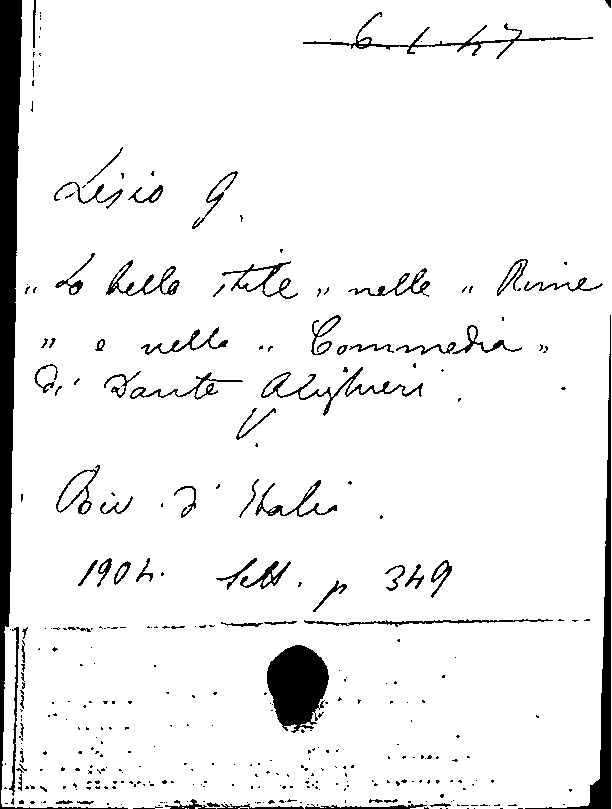 6.1.47
Lisio G.
„ Lo bello stile „ nelle „ Rime
„ e nella „ Commedia „
di Dante Alighieri.
V.
Riv. d' Italia.
1904. Sett. p 349